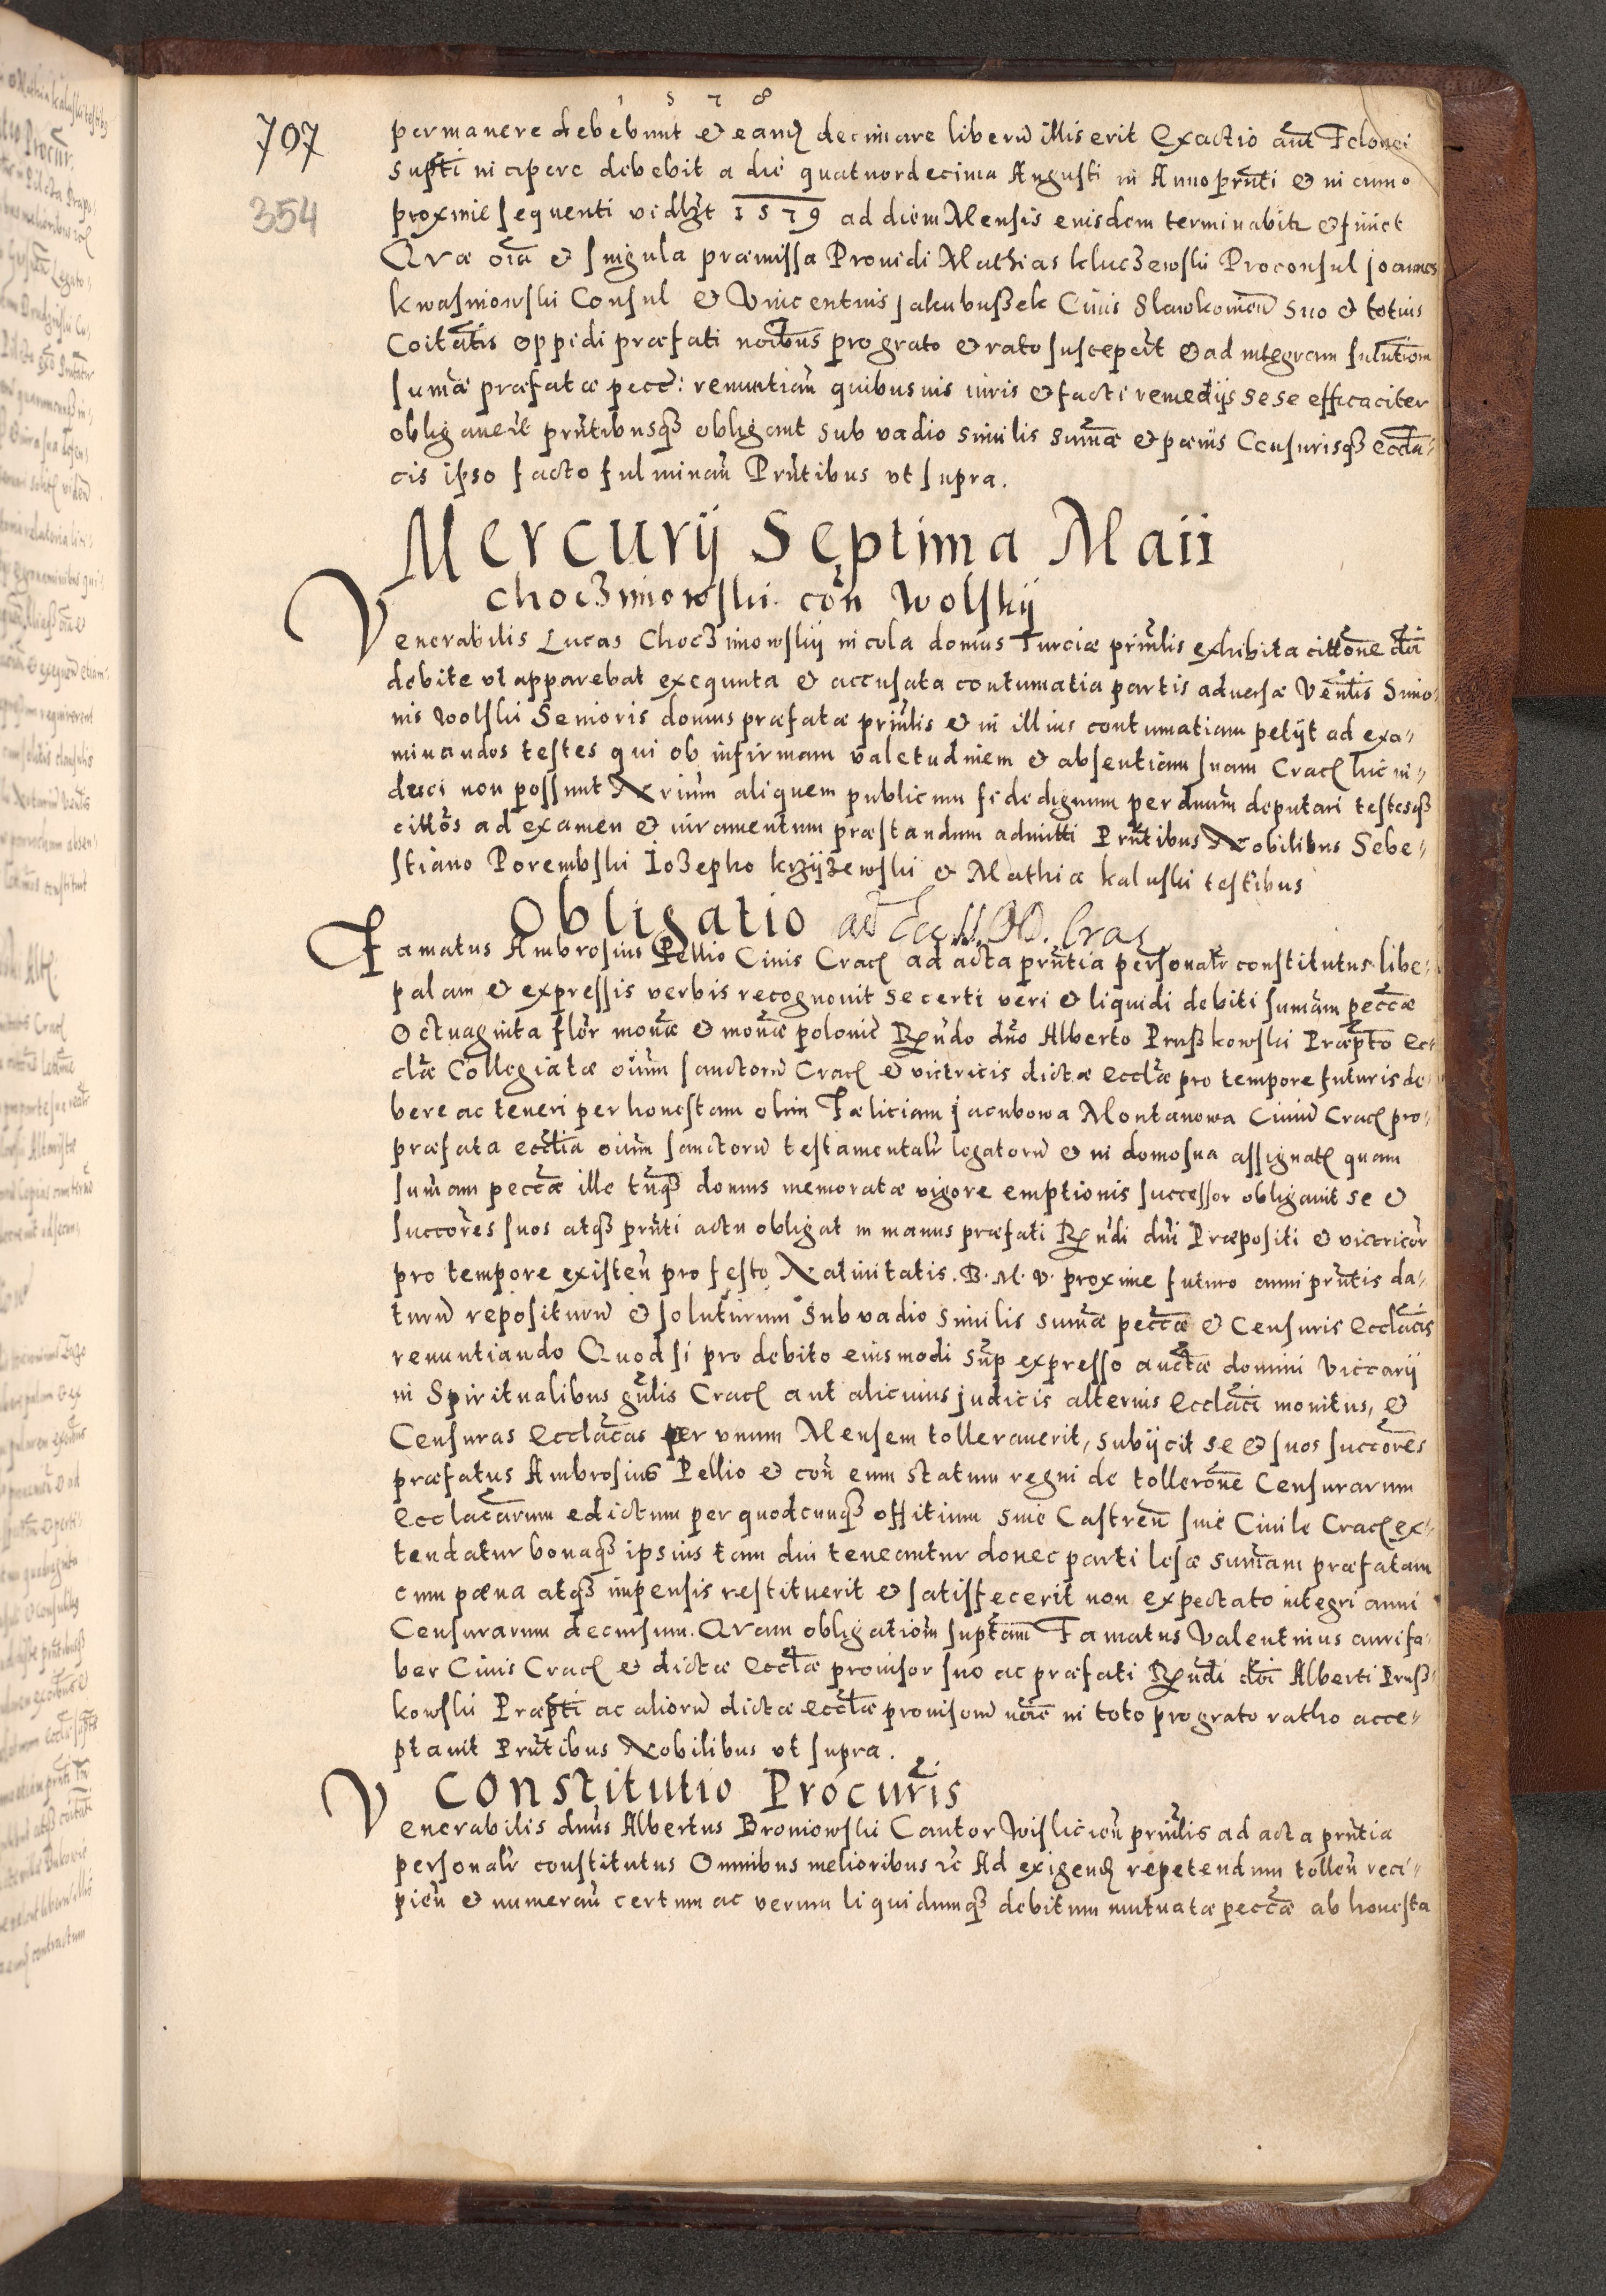 1 5 7 8
707
permanere debebunt & eandē decimare liberū illis erit Exactio aūt Telonei
354
supṫi incipere debebit a die quatuordecima Augusti in Anno prn̄ti & in anno
proxime sequenti vidlꝫt 1579 ad diem Mensis eiusdem terminabitr & finiet
Quæ oīa & singula præmissa Prouidi Mathias kluczewski Proconsul joannes
kwasniowski Consul & Vincentius jakubußek Ciuis Slawkouien̄ suo & totius
Coitātis oppidi præfati noībus pro grato & rato susceper̄t & ad integram solutiōm
sum̄æ præfatæ pecc̄: renuntian̄ quibusuis iuris & facti remedijs sese efficaciter
obligauer̄t prn̄tibusqꝫ obligant sub vadio similis sum̄æ & pænis Censurisqꝫ eccla„
cis ipso facto fulminan̄ Prn̄tibus vt supra.
Mercurij Septima Maii
choczniowski con̄ Wolskij
Venerabilis Lucas Choczniowskij incola domus Turciæ prin̄lis exhibita cittōne dcī
debite vt apparebat exequuta & accusata contumatia partis aduersæ Ven̄lis Simo„
nis Wolski Senioris domus præfatæ prin̄lis & in illius contumatiam petijt ad exa„
minandos testes qui ob infirmam valetudinem & absentiam suam Crac̄ huc in„
duci non possunt Nrium̄ aliquem publicum fide dignum per dnum̄ deputari testesqꝫ
cittōs ad examen & iuramentum præstandum admitti Prn̄tibus Nobilibus Seba„
stiano Porembski Iozepho krzyżewski & Mathia kaluski testibus
Obligatio ad Ecc. OO. Crac
Famatus Ambrosius Pellio Ciuis Crac̄ ad acta prn̄tia personalr̄ constitutus libe„
palam & expressis verbis recognouit se certi veri & liquidi debiti sum̄am pecc̄æ
Octuaginta flōr mon̄æ & mon̄æ polonic̄ Rn̄do dn̄o Alberto Prußkowski Præpt̄o Ec„
clæ Collegiatæ oīum sanctorū Crac̄ & victricis dictæ ecclæ pro tempore futuris de„
bere ac teneri per honestam olim Fæliciam jacubowa Montanowa Ciuiū Crac̄ pro„
præfata ecctīa oīum sanctorū testamentalr̄ legatorū & in domo sua assignat̄ quam
sum̄am pecc̄æ ille tn̄qꝫ domus memoratæ vigore emptionis successor obligauit se &
succōres suos atqꝫ prn̄ti actu obligat in manus præfati Rn̄di dn̄i Præpositi & victricūr
pro tempore existen̄ pro festo Natiuitatis. B. M. V. proxime futuro anni prn̄tis da„
turū repositurū & soluturum sub vadio similis sum̄æ pecc̄æ & Censuris Ecclācis
renuntiando Quod si pro debito eiusmodi sup̄ expresso auctæ domini Viccarij
in Spiritualibus gn̄lis Crac̄ aut alicuius judicis alterius Ecclācī monitus, &
Censuras Ecclācas per vnum Mensem tollerauerit, subijcit se & suos succōres
præfatus Ambrosius Pellio & con̄ eum statum regni de tollerōne Censurarum
Ecclacārum edictum per quodcunqꝫ offitium siue Castren̄ siue Ciuile Crac̄ ex„
tendatur bonaqꝫ ipsius tam diu teneantur donec parti lesæ sum̄am præfatam
cum pæna atqꝫ impensis restituerit & satisfecerit non expectato integri anni
Censurarum decursum. Quam obligatiōm suptam̄ Famatus Valentinus aurifa„
ber Ciuis Crac̄ & dictæ Ecctæ prouisor suo ac præfati Rn̄di dn̄i Alberti Pruß„
kowski Præpt̄i ac aliorū dictæ ecctæ prouisorū noīe in toto pro grato ratho acce„
ptauit Prn̄tibus Nobilibus vt supra.
Constitutio Procur̄is
Venerabilis dn̄us Albertus Broniowski Cantor Wislicien̄ prin̄lis ad acta prn̄tia
personalr̄ constitutus Omnibus melioribus ꝛc̄ Ad exigend̄ repetendum tollen̄ reci„
pien̄ & numeran̄ certum ac verum liquidumqꝫ debitum mutuatæ pecc̄æ ab honesta